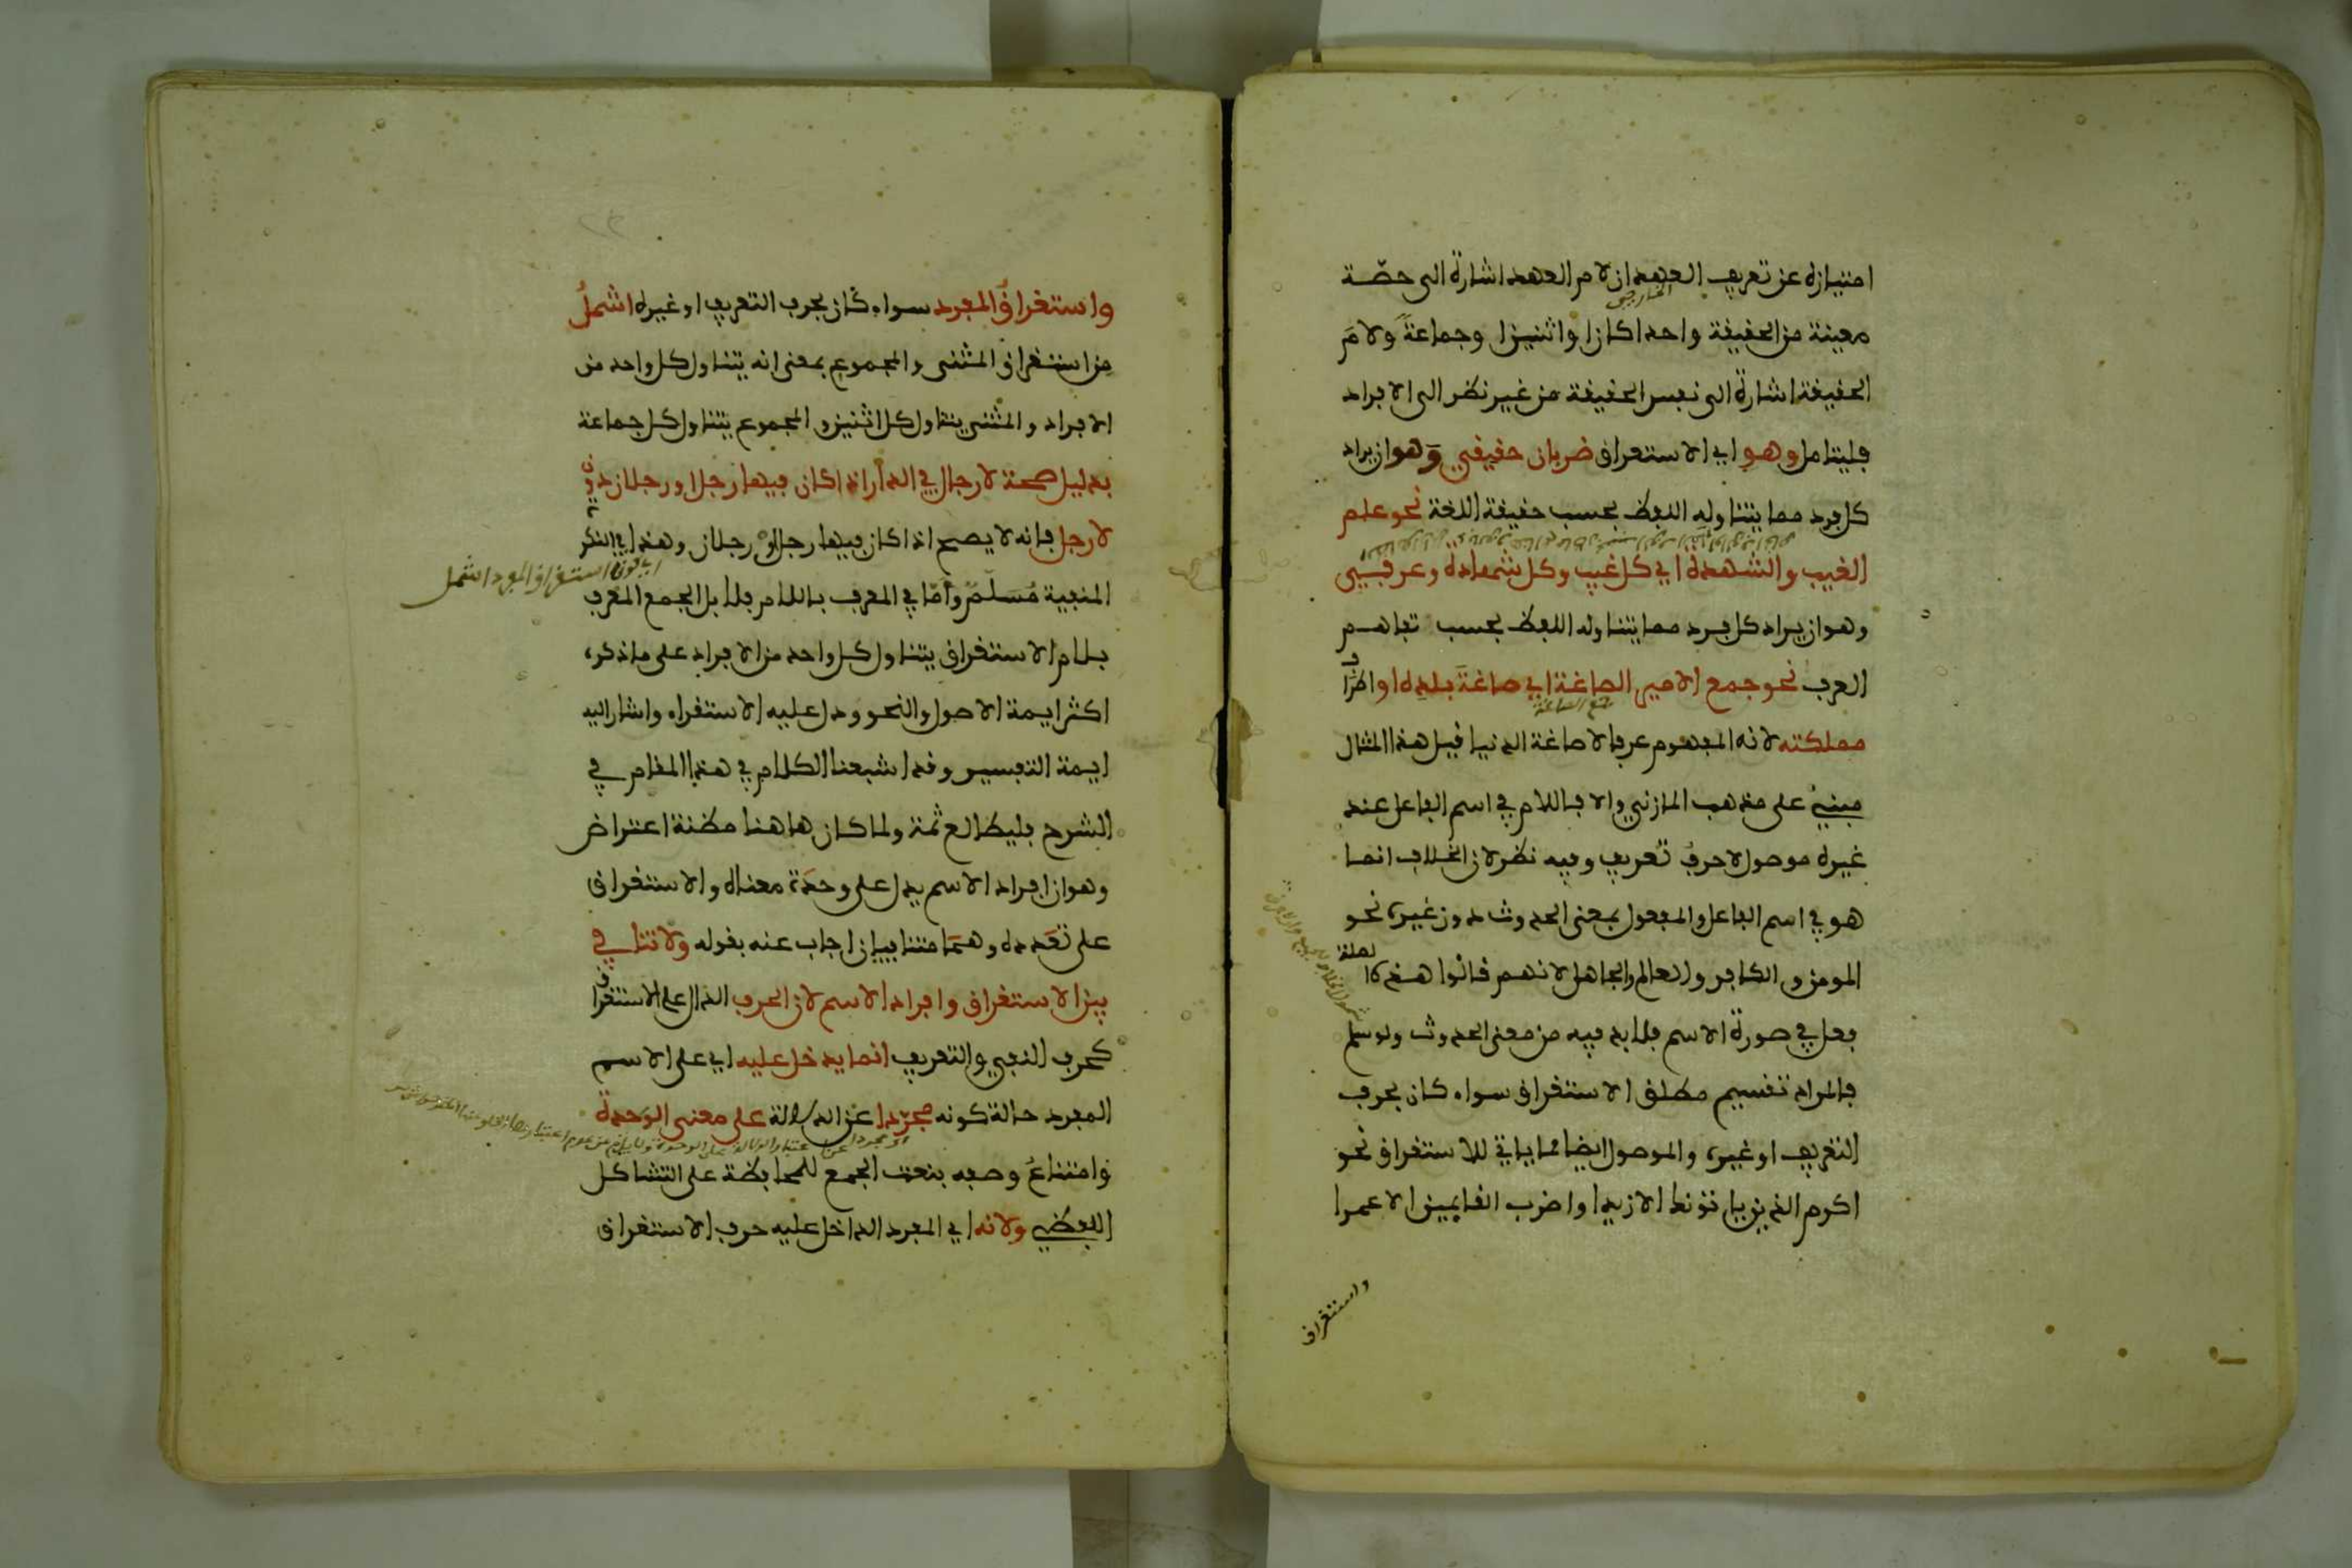 امتيازه عن تعريف العهد ان لام العهد اشارة الى حصّة
الخارجي
معينة من الحقيقة واحدا كان او اثنين او جماعة ولام
الحقيقة اشارة الى نفس الحقيقة من غير نظر الى الافراد
فليتامل وهو اي الاستغراق ضربان حقيقي وهو ان يراد
كل فرد مما يتناوله اللفظ بحسب حقيقة اللغة نحو علم
الغيب والشهدة اي كل غيب وكل شهادة وعرفي
وهو ان يراد كل فرد مما يتناوله اللفظ بحسب تفاهم
العرف نحو جمع الامير الصاغة اي صاغة بلده او اطراف
مملكته لانه المفهوم عرفا لا صاغة الدنيا قيل هذا المثال
مبني على مذهب المازني والا فاللام في اسم الفاعل عند
غيره موصول لا حرف تعريف وفيه نظر لان الخلاف انما
هو في اسم الفاعل والمفعول بمعنى الحدوث دون غيره نحو
المومن والكافر والعالم والجاهل لانهم قالوا هذه الصلة
فعل في صورة الاسم فلا بد فيه من معنى الحدوث ولو سلم
فالمراد تقسيم مطلق الاستغراق سواء كان بحرف
التعريف او غيره والموصول ايضا مما ياتي للاستغراق نحو
اكرم الذين ياتونك الا زيدا واضرب القايمين الا عمرا
واستغراق
واستغراق المفرد سواء كان بحرف التعريف او غيره اشمل
من استغراق المثنى والمجموع بمعنى انه يتناول كل واحد من
الافراد والمثنى يتناول كل اثنين والمجموع يتناول كل جماعة
بدليل صحة لا رجال في الدار اذا كان فيها رجل او رجلان دون
لا رجل فانه لا يصح اذا كان فيها رجل او رجلان وهذا في النكرة
اي كون استغراق المفرد اشمل
المنفية مُسلّم وامّا في المعرف باللام فلا بل الجمع المعرف
بلام الاستغراق يتناول كل واحد من الافراد على ما ذكره
اكثر ايمة الاصول والنحو ودل عليه الاستقراء واشار اليه
ايمة التفسير وقد اشبعنا الكلام في هذا المقام في
الشرح فليطالع ثمة ولما كان هاهنا مظنة اعتراض
وهو ان افراد الاسم يدل على وحدة معناه والاستغراق
على تعدده وهما متنافيان اجاب عنه بقوله ولا تنافي
بين الاستغراق وافراد الاسم لان الحرف الدال على الاستغراق
كحرف النفي والتعريف انما يدخل عليه اي على الاسم
المفرد حالة كونه مجرّدا عن الدلالة على معنى الوحدة
وامتناع وصفه بنعت الجمع للمحافظة على التشاكل
اللفظي ولانه اي المفرد الداخل عليه حرف الاستغراق